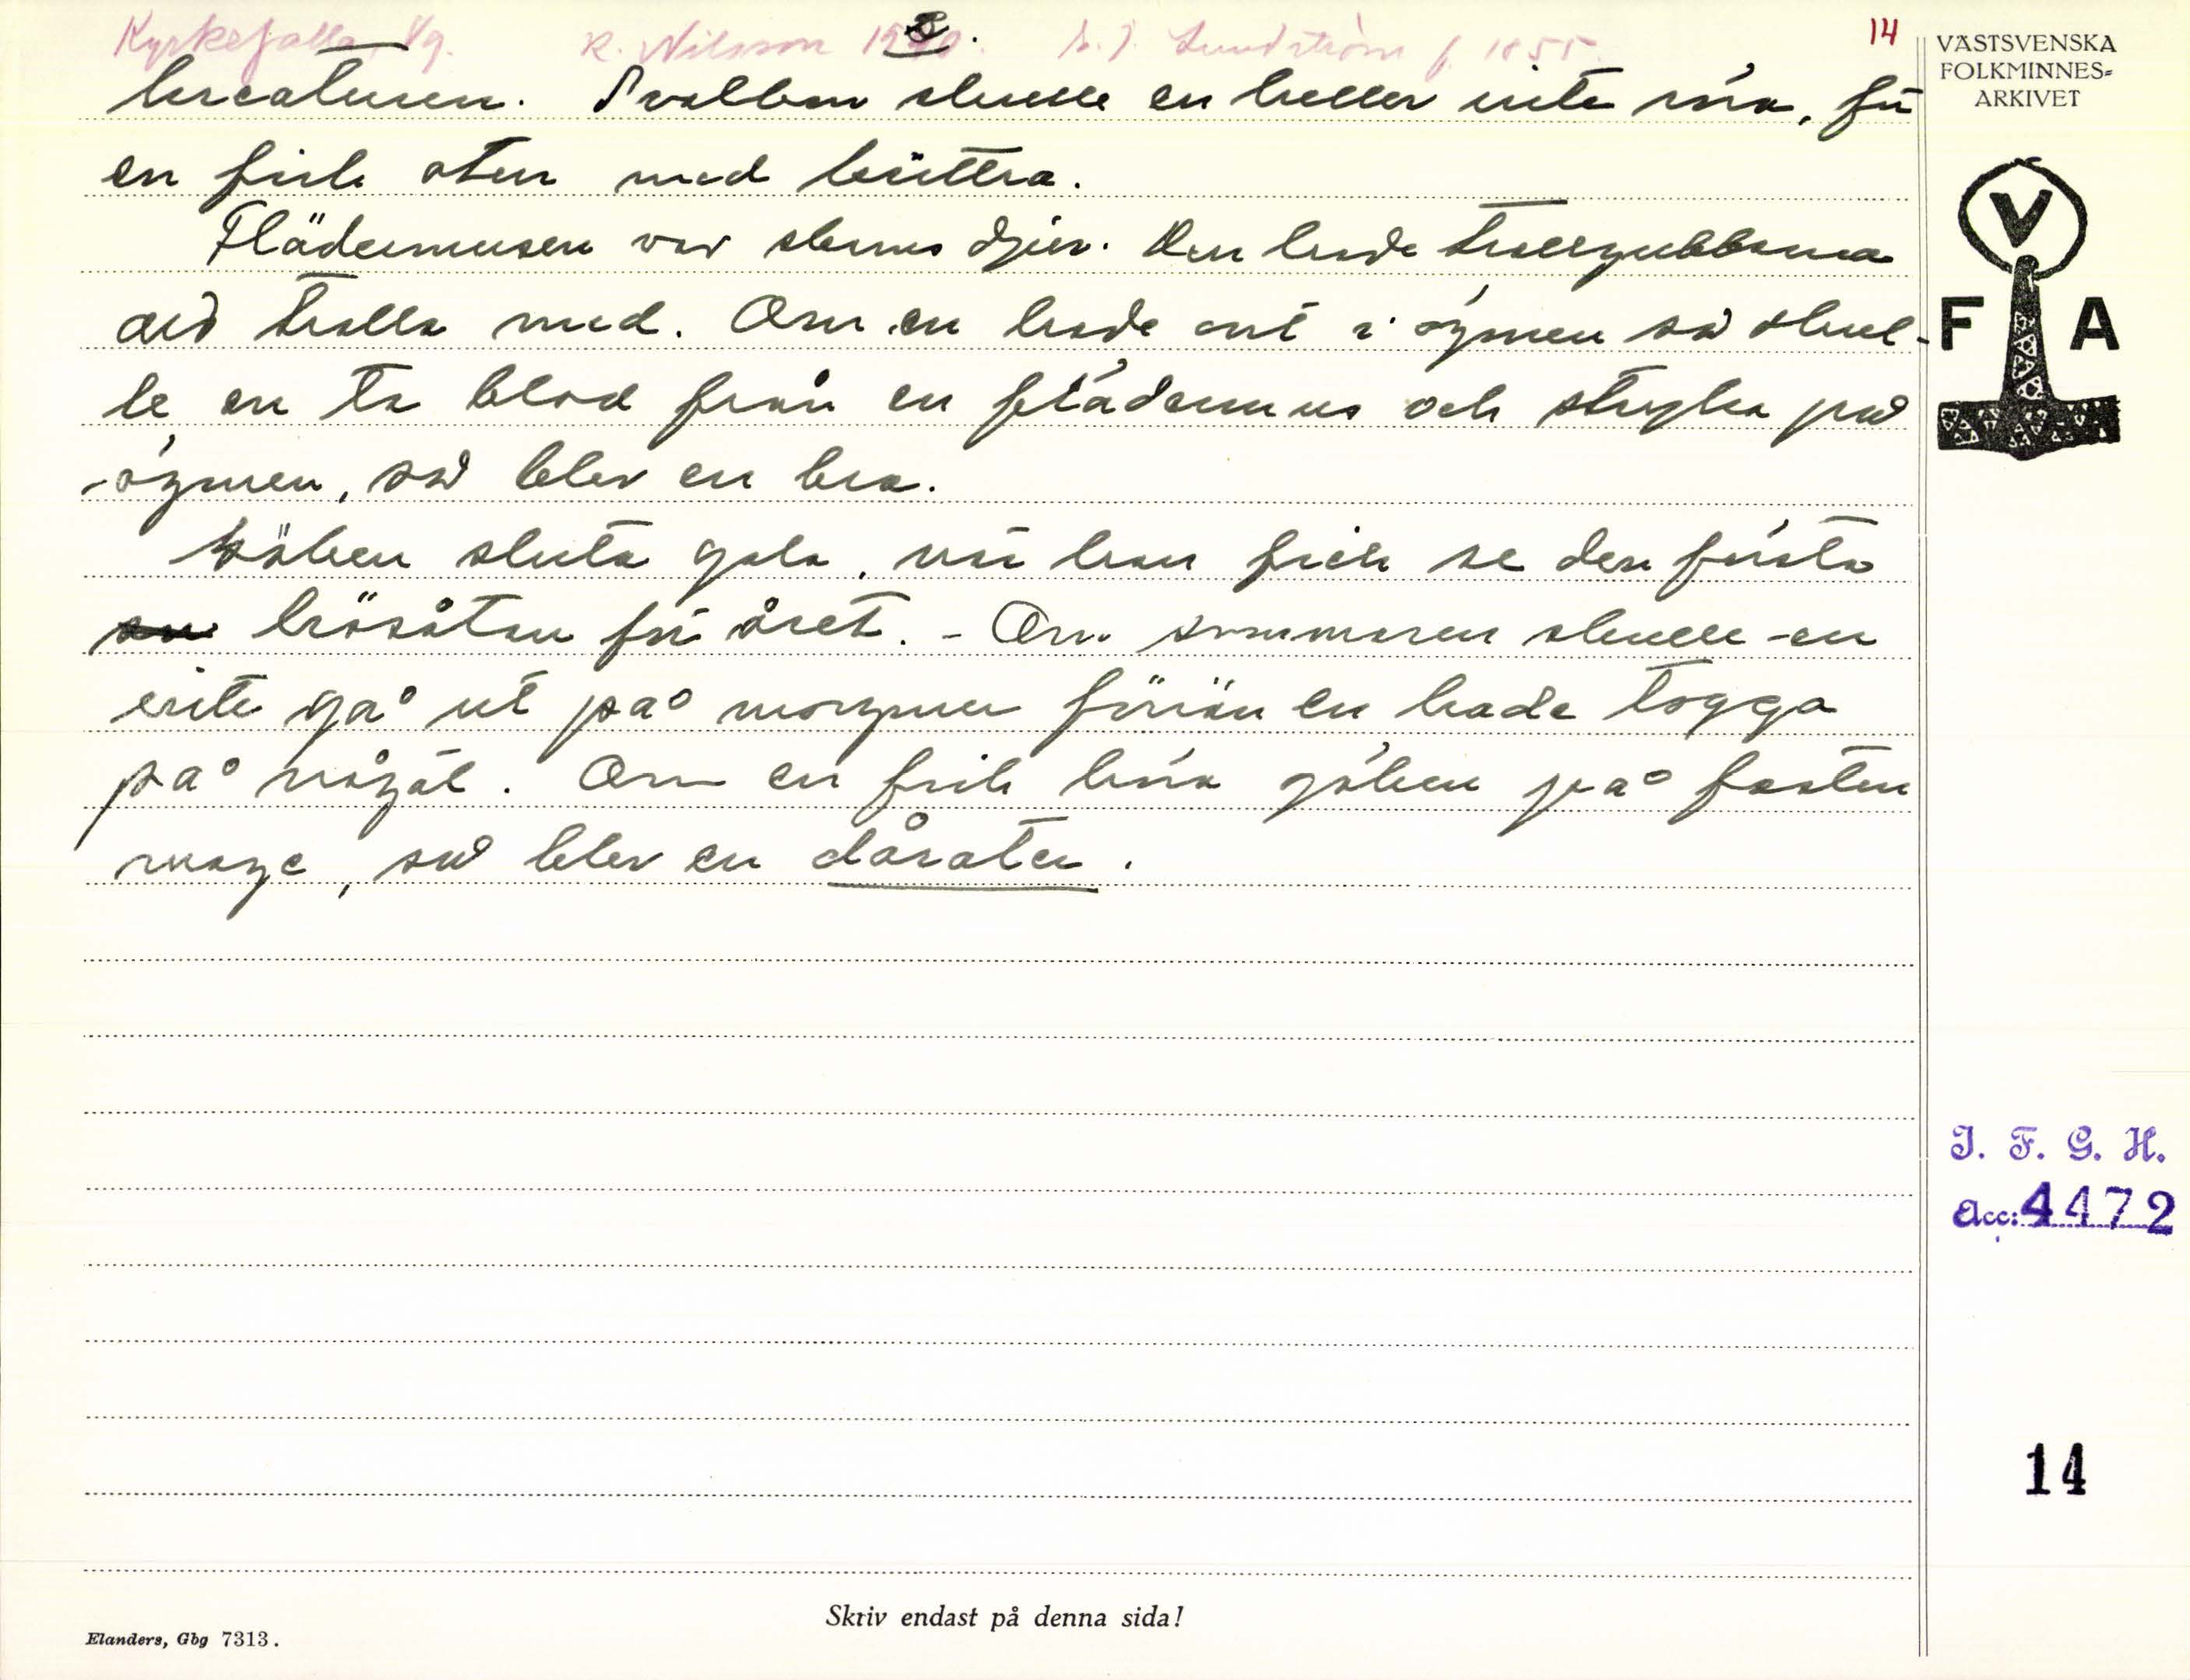 Kyrkefalla Vg. K. Nilsson 1940. L. J. Lundström f. 1855.
3.
14
kreaturen. Svalbon skulle en heller inte röra, för
en fick oten med byttra.
Flädermusen var slems djur. Den hade trollgubbarna
aid trolla med. Om en hade ont i ögmen så skul-
le en ta blod från en flädermus och stryka på
ögmen, så blev en bra.
Göken sluta gala, när han fick se den första
hösåten för året. - Om sommaren skulle en
inte gå ut på morgmen förrän en hade togga
på någåt. Om en fick höra göken på fasten
mage, så blev en dåraten.
VÄSTSVENSKA
FOLKMINNES=
ARKIVET
V
F A
I. F. G. H.
Acc: 4472
14
Skriv endast på denna sida!
Elanders, Gbg 7313.